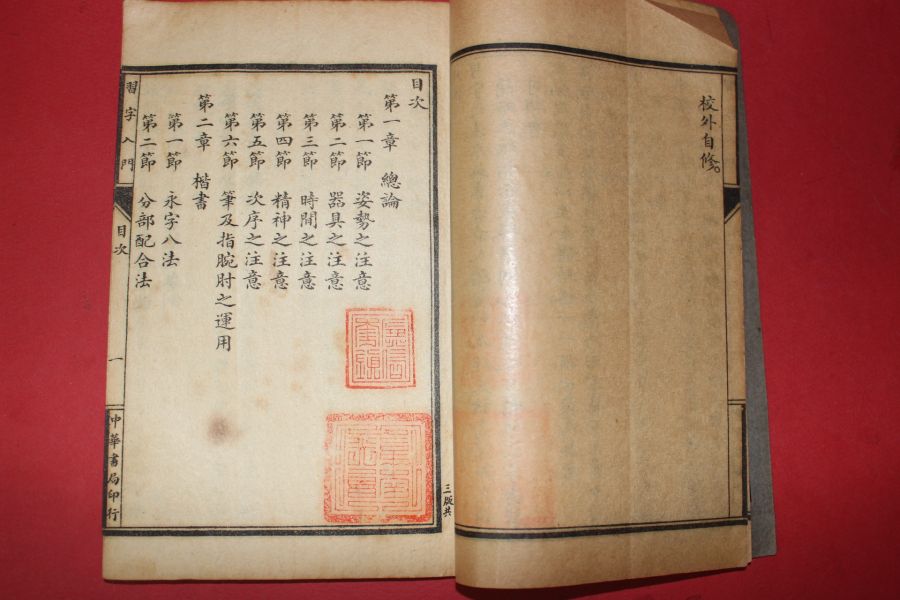 校外自修。
目次
第一章 總論
第一節 姿勢之注意
第二節 器具之注意
第三節 時間之注意
第四節 精神之注意
第五節 次序之注意
第六節 筆及指腕肘之運用
第二章 楷書
第一節 永字八法
第二節 分部配合法
習字入門
目次
一
中華書局印行
三版共